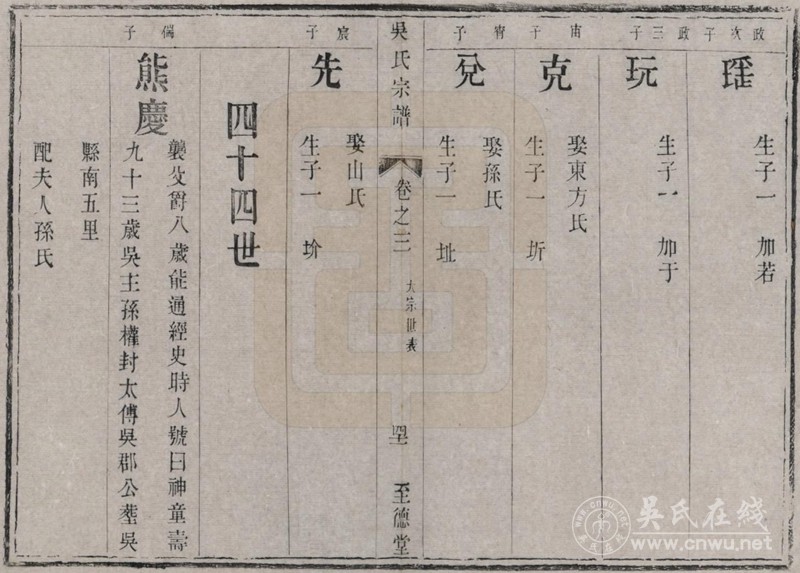 政次子
瑶
生子一 加若
政三子
玩
生子一 加于
宙子
克
娶東方氏
生子一 圻
宵子
兌
娶孫氏
生子一 址
吳氏宗譜
卷之三
大宗世表
至德堂
宸子
先
娶山氏
生子一 圿
四十四世
偁子
熊慶
襲父爵八歲能通經史時人號曰神童壽
九十三歲吳主孫權封太傅吳郡公塟吳
縣南五里
配夫人孫氏
吳氏在线
www.cnwu.net